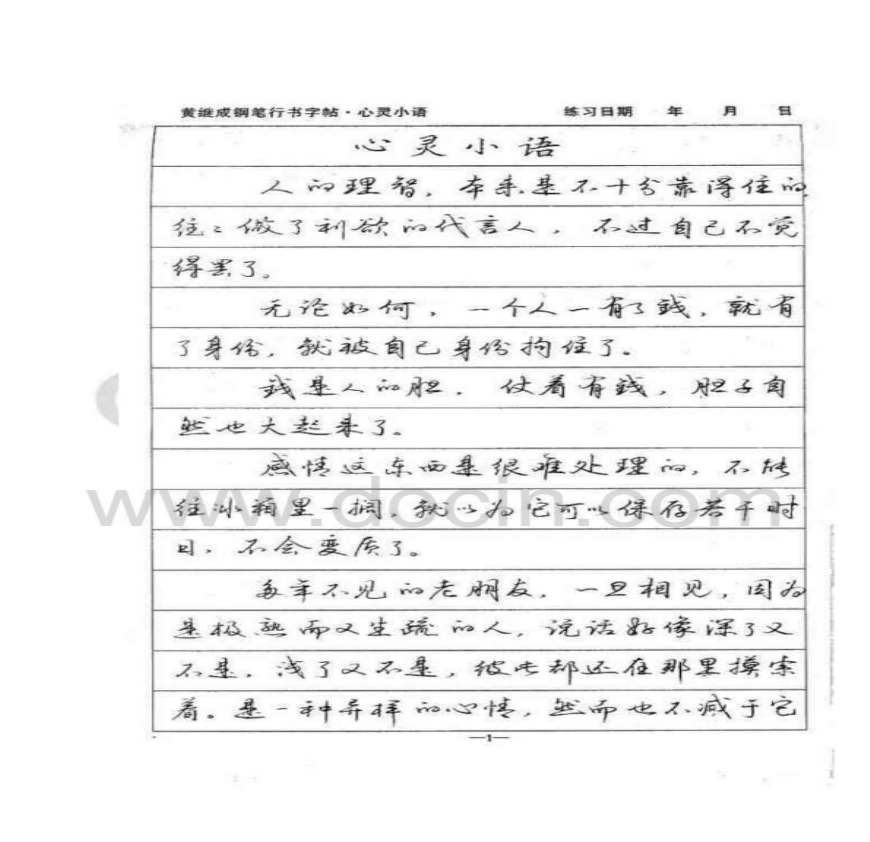 黄继成钢笔行书字帖·心灵小语 练习日期 年 月 日
心灵小语
人的理智,本来是不十分靠得住的,
往往做了利欲的代言人,不过自己不觉
得罢了。
无论如何,一个人一有了钱,就有
了身份,就被自己身份拘住了。
钱是人的胆,仗着有钱,胆子自
然也大起来了。
感情这东西是很难处理的,不能
往冰箱里一搁,就以为它可以保存若干时
日,不会变质了。
www.docin.com
多年不见的老朋友,一旦相见,因为
是极熟而又生疏的人,说话好像深了又
不是,浅了又不是,彼此都还在那里摸索
着。是一种异样的心情,然而也不减于它
—1—